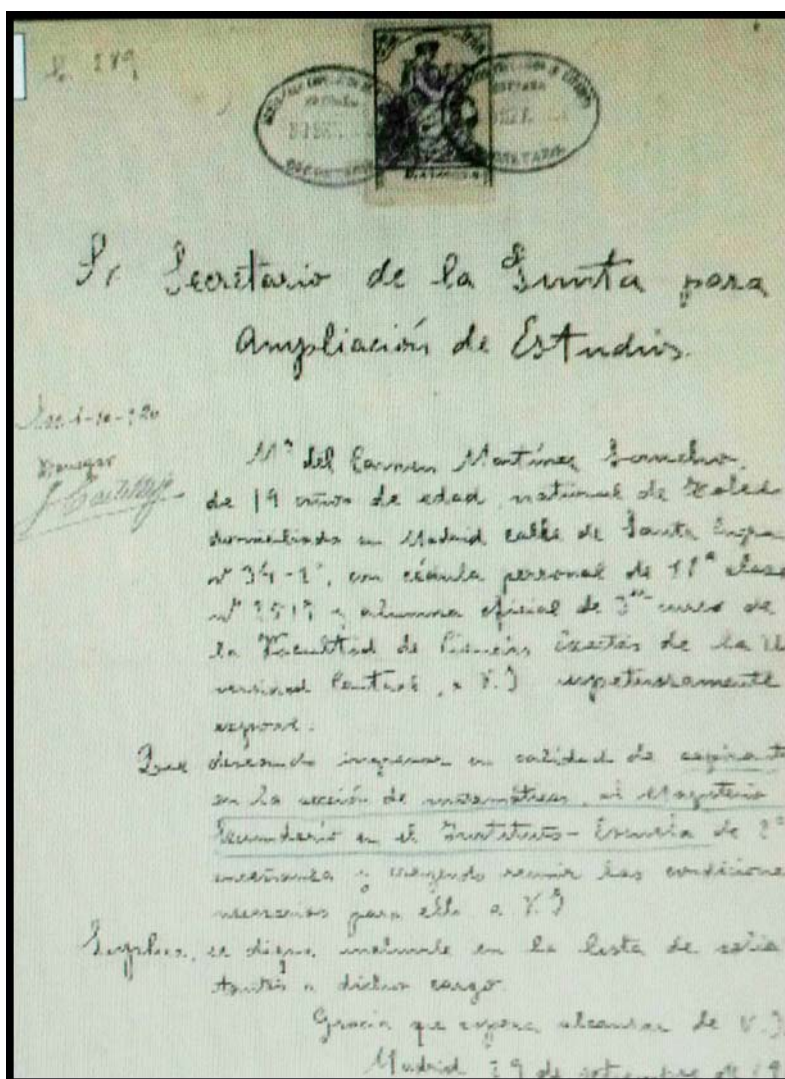 Sr Secretario de la Junta para
Ampliación de Estudios.
Denegar
J Castillejo
Mª del Carmen Martínez Sancho,
de 19 años de edad, natural de Toledo
domiciliada en Madrid calle de Santa
nº 34-2º, con cédula personal de 11ª clase
nº 2517 y alumna oficial de 3er curso de
la Facultad de Ciencias Exactas de la U
versidad Central, a V.I respetuosamente
expone.
Que deseando ingresar en calidad de aspirante
en la sección de matemáticas, al Magisterio
Secundario en el Instituto-Escuela de 2ª
enseñanza y creyendo reunir las condicione
necesarias para ello a V.I
Suplica, se digne incluirle en la lista de solici
tantes a dicho cargo.
Gracia que espera alcanzar de V.I.
Madrid 29 de setiembre de 19